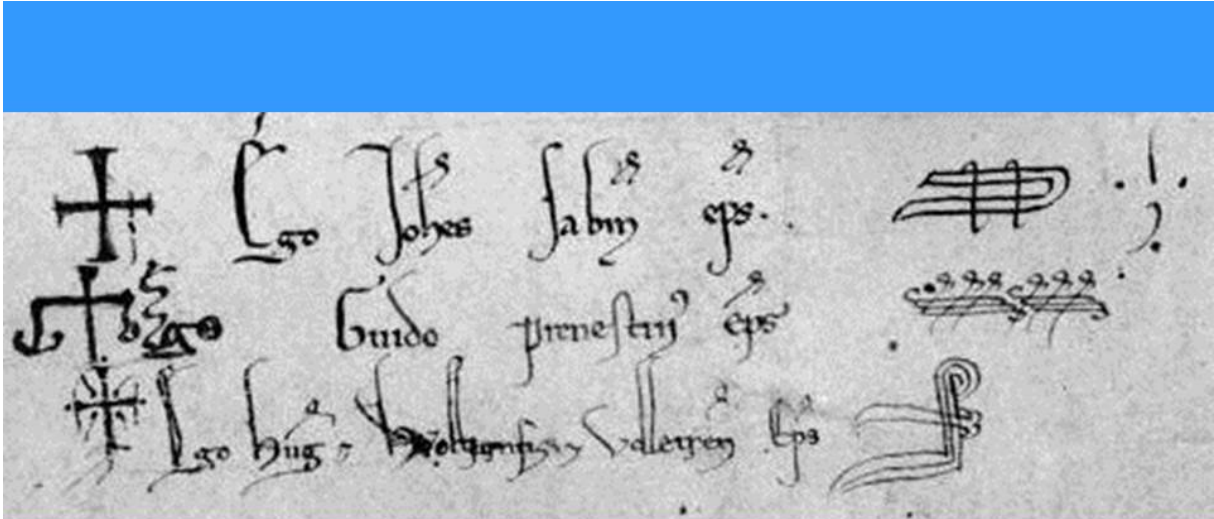 Ego Johes Sabin eps.
Ego Guido prenestin eps
Ego hug Velletren Eps